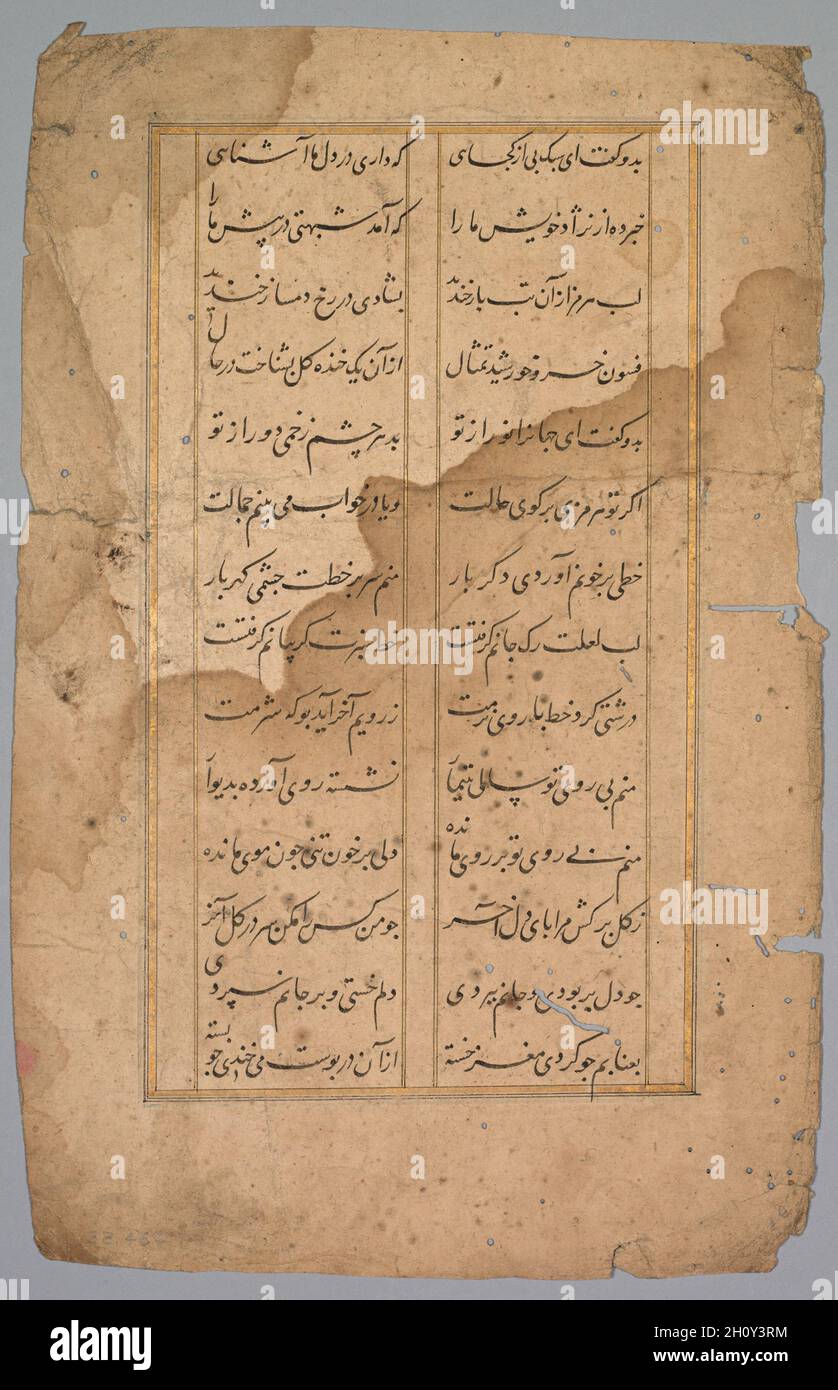 بدو کفت ای سبک پی از کجایی که داری در دل ما آشنایی
خبر ده از نژاد خویش ما را که آمد شبهتی در پیش ما را
لب هرمز از آن بت باز خندید بشادی در رخ دمساز خندید
فسون خسرو خورشید تمثال از آن یک خنده کل بشناخت در حال
بدو کفت ای جهانرا نور از تو بد هر چشم زخمی دور از تو
اکر تو هرمزی برکوی حالت و یا در خواب می بینم جمالت
خطی بر خونم آوردی دکر بار منم سر بر خطت چشمی کهربار
لب لعلت رک جانم کرفتست خط سبزت کریبانم کرفتست
درشتی کرد خط با روی نرمت ز رویم آخر آید بو که شرمت
منم بی روی تو نشسته روی آورده بدیوار
منم بی روی تو بر روی مانده دلی پر خون تنی چون موی مانده
ز کل برکش مرا پای دل آخر چو من کس را مکن سر در کل آخر
چو دل بربودی و جانم ببردی دلم خستی و بر جانم سپردی
بعنابم چو کردی مغز خسته از آن در پوست می خندی چو بسته
alamy
Image ID: 2H0Y3RM
www.alamy.com